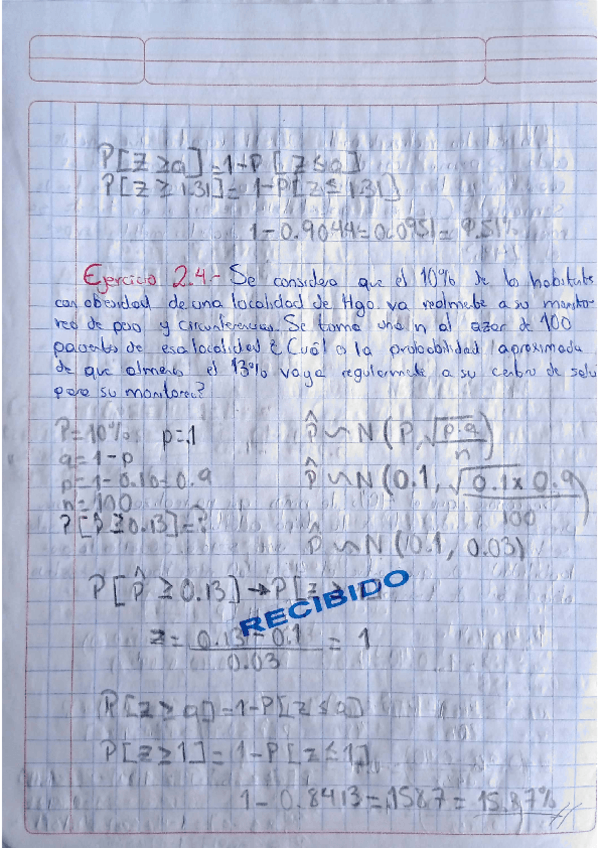 P[Z≥a]=1-P[Z≤a]
P[Z≥1.31]=1-P[Z≤1.31]
1-0.9044=0.0951=9.51%
Ejercicio 2.4.- Se considera que el 10% de los habitats
con obesidad de una localidad de Hgo. va realmente a su monito-
reo de peso y circunferencias. Se toma una n al azar de 100
pacientes de esa localidad ¿Cuál es la probabilidad aproximada
de que almenos el 13% vaya regularmente a su centro de salu
para su monitoreo?
P=10% p=.1
q=1-p
p=1-0.10=0.9
n=100
P[p̂≥0.13]=?
p̂ ~ N(P, √p.q/n)
p̂ ~ N(0.1, √0.1x0.9/100)
p̂ ~ N(0.1, 0.03)
P[p̂ ≥0.13]→P[z ≥
RECIBIDO
z= 0.13-0.1/0.03 = 1
P[z≥a]=1-P[z≤a]
P[z≥1]=1-P[z≤1]
1-0.8413=.1587=15.87%